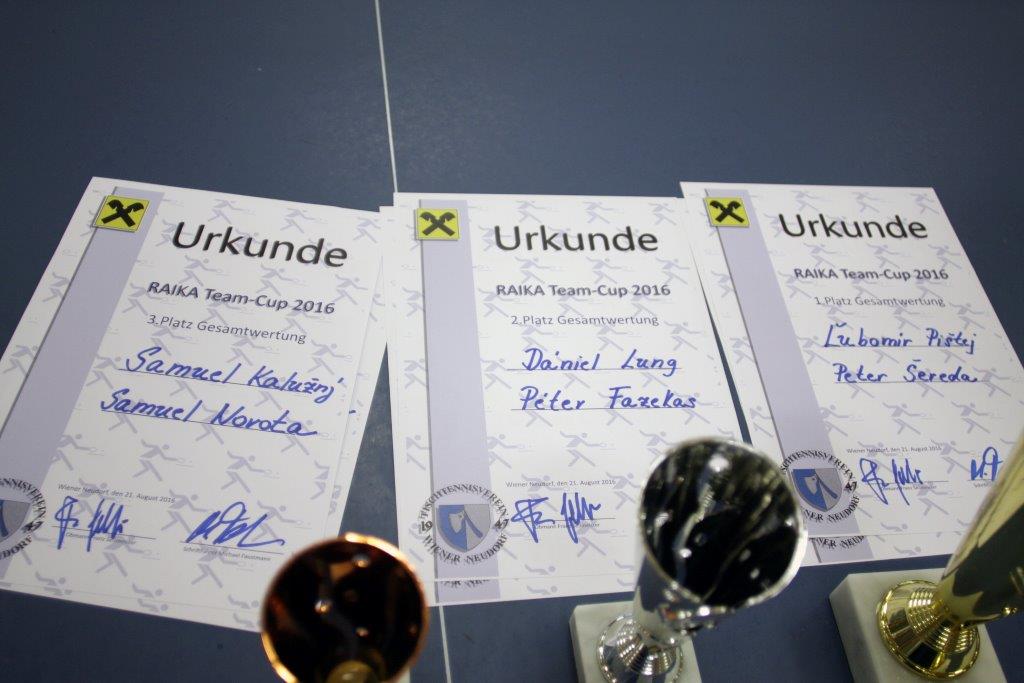 Urkunde
RAIKA Team-Cup 2016
3.Platz Gesamtwertung
Samuel Kalužnj
Samuel Novota
Wiener Neudorf, den 21. August 2016
Schriftführer Michael Faustmann
Urkunde
RAIKA Team-Cup 2016
2.Platz Gesamtwertung
Dániel Lung
Péter Fazekas
TISCHTENNISVEREIN
1947
WIENER NEUDORF
Obmann
Urkunde
RAIKA Team-Cup 2016
1.Platz Gesamtwertung
Ľubomir Pištej
Peter Šereda
Wiener Neudorf, den 21. August 2016